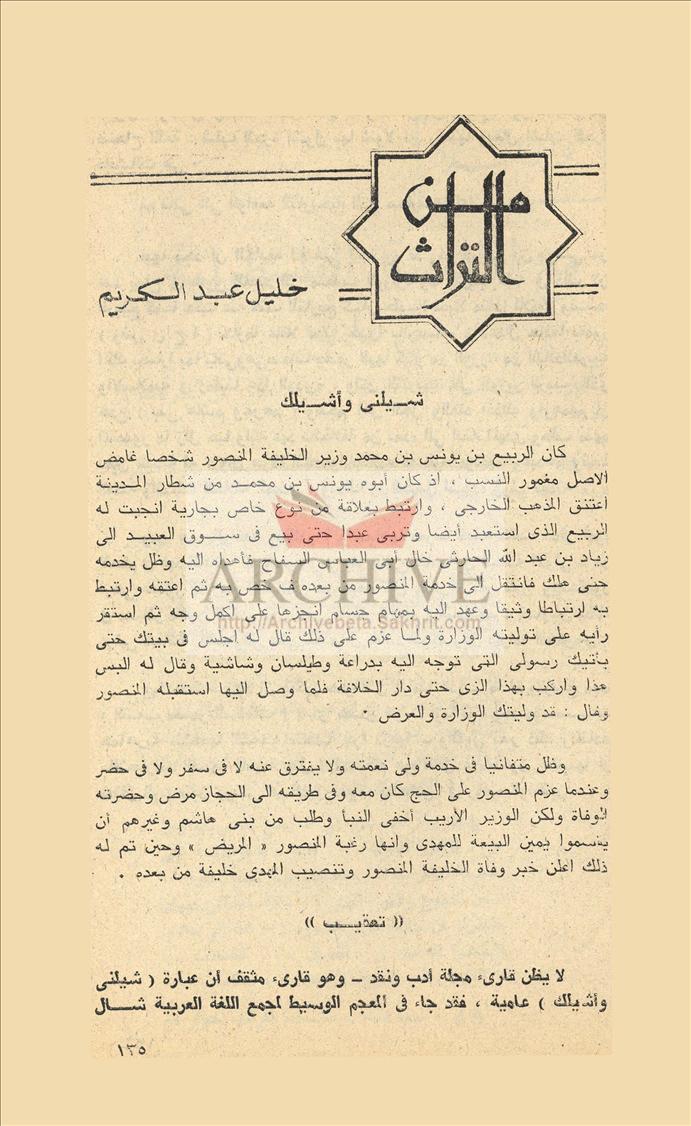 من
التراث
خليل عبد الكريم
شـيلنى وأشـيلك
كان الربيع بن يونس بن محمد وزير الخليفة المنصور شخصا غامض
الاصل مغمور النسب ، اذ كان أبوه يونس بن محمـد من شطار المدينـة
أعتنق المذهب الخارجى ، وارتبط بعلاقة من نوع خاص بجارية انجبت له
الربيع الذى استعبد أيضا وتربى عبدا حتى بيع فى سـوق العبيـد الى
زياد بن عبد الله الحارثى خال أبى العباس السفاح فأهداه اليه وظل يخدمه
حتى هلك فانتقل الى خدمة المنصور من بعده ف خص به ثم اعتقه وارتبط
به ارتباطا وثيقا وعهد اليه بمهام جسام انجزها على اكمل وجه ثم استقر
رأيه على توليته الوزارة ولمـا عزم على ذلك قال له اجلس فى بيتك حتى
يأتيك رسولى التى توجه اليه بدراعة وطيلسان وشاشية وقال له البس
هذا واركب بهذا الزى حتى دار الخلافة فلما وصل اليها استقبله المنصور
وقال : قد وليتك الوزارة والعرض ٠
وظل متفانيا فى خدمة ولى نعمته ولا يفترق عنه لا فى سفر ولا فى حضر
وعندما عزم المنصور على الحج كان معه وفى طريقه الى الحجاز مرض وحضرته
الوفاة ولكن الوزير الأريب أخفى النبأ وطلب من بنى هاشم وغيرهم أن
يقسموا يمين البيعة للمهدى وانها رغبة المنصور « المريض » وحين تم له
ذلك اعلن خبر وفاة الخليفة المنصور وتنصيب المهدى خليفة من بعده .
(( تعقيـب ))
لا يظن قارىء مجلة أدب ونقد ـ وهو قارىء مثقف أن عبارة ( شيلنى
وأشيلك ) عامية ، فقد جاء فى المعجم الوسيط لمجمع اللغة العربية شــال
١٣٥
ARCHIVE
http://Archivebeta.Sakhrit.com